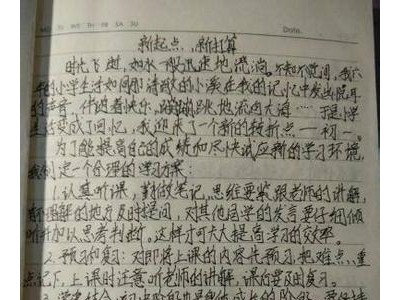 MO TU WE TH FR SA SU Date.
新起点,新打算
时光飞逝,如水一般迅速地流淌。不知不觉间,我六
年的小学生活如同那清澈的小溪在我的记忆中发出悦耳
的声音,伴随着快乐,蹦蹦跳跳地流向大海……于是小学
生活变成了回忆,我迎来了一个新的转折点——初一。
为了能提高自己的成绩和尽快试应新的学习环境,
我制定一个合理的学习方案:
1.认真听课,勤做笔记,思维要紧跟老师的讲解,
有不理解的地方及时提问,对其他同学的发言要仔细倾
听并加以思考判断。这样才可大大提高学习的效率。
2.预习和复习:对即将上课的内容先预习,把难点、重
点记下,上课时注意听老师的讲解,课后要及时复习。
3.学思结合